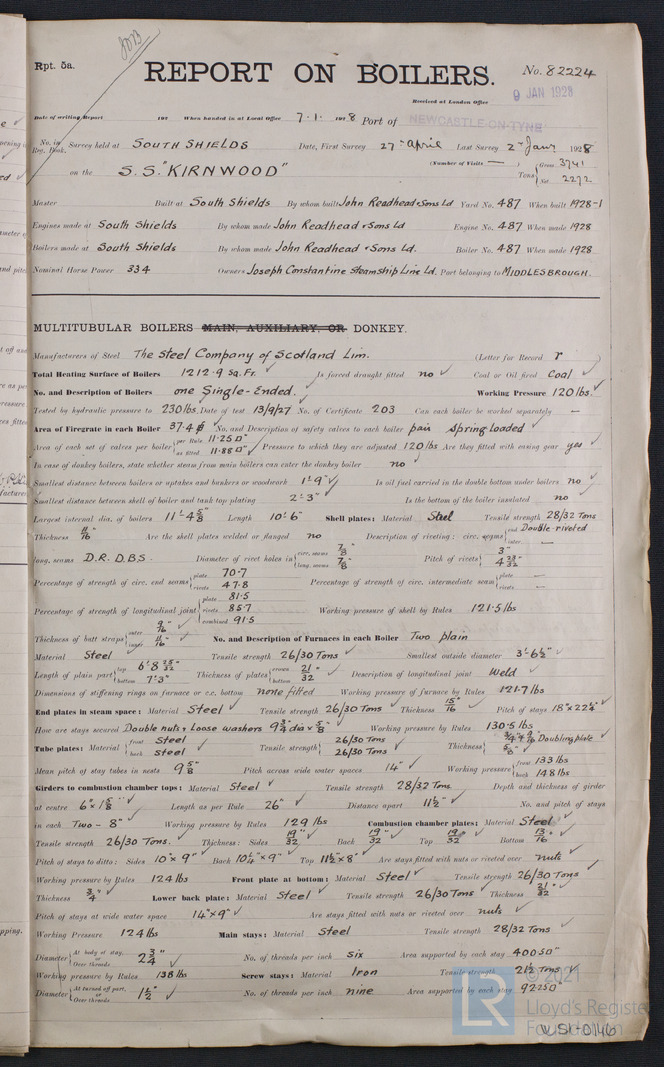 8023
Rpt. 5a.
REPORT ON BOILERS.
No. 82224
Received at London Office
9 JAN 1928
Date of writing Report 192 When handed in at Local Office 7.1. 1928 Port of NEWCASTLE-ON-TYNE
No. in Reg. Book. Survey held at SOUTH SHIELDS Date, First Survey 27th April Last Survey 2nd Jany 1928
on the S.S. "KIRNWOOD" (Number of Visits — ) Tons { Gross 3741 Net 2272.
Master Built at South Shields By whom built John Readhead & Sons Ld Yard No. 487 When built 1928-1
Engines made at South Shields By whom made John Readhead & Sons Ld Engine No. 487 When made 1928
Boilers made at South Shields By whom made John Readhead & Sons Ld. Boiler No. 487 When made 1928
Nominal Horse Power 334 Owners Joseph Constantine Steamship Line Ld. Port belonging to MIDDLESBROUGH.
MULTITUBULAR BOILERS MAIN, AUXILIARY, OR DONKEY.
Manufacturers of Steel The Steel Company of Scotland Lim. (Letter for Record r )
Total Heating Surface of Boilers 1212.9 Sq. Ft. Is forced draught fitted no ✓ Coal or Oil fired Coal ✓
No. and Description of Boilers one Single-Ended. Working Pressure 120 lbs. ✓
Tested by hydraulic pressure to 230 lbs. Date of test 13/9/27 No. of Certificate 203 Can each boiler be worked separately —
Area of Firegrate in each Boiler 37.4 No. and Description of safety valves to each boiler pair spring loaded ✓
Area of each set of valves per boiler { per Rule 11.25 □" as fitted 11.88 □" ✓ Pressure to which they are adjusted 120 lbs Are they fitted with easing gear yes ✓
In case of donkey boilers, state whether steam from main boilers can enter the donkey boiler no
Smallest distance between boilers or uptakes and bunkers or woodwork 1'-9" ✓ Is oil fuel carried in the double bottom under boilers no ✓
Smallest distance between shell of boiler and tank top plating 2'-3" ✓ Is the bottom of the boiler insulated no
Largest internal dia. of boilers 11'-4 5/8 Length 10'-6" Shell plates: Material Steel Tensile strength 28/32 Tons
Thickness 11/16" Are the shell plates welded or flanged no Description of riveting: circ. seams { end Double-riveted inter. —
long. seams D.R. D.B.S. Diameter of rivet holes in { circ. seams 7/8" long. seams 7/8" Pitch of rivets { 3" 4 23/32
Percentage of strength of circ. end seams { plate 70.7 rivets 47.8 Percentage of strength of circ. intermediate seam { plate — rivets —
Percentage of strength of longitudinal joint { plate 81.5 rivets 85.7 combined 91.5 Working pressure of shell by Rules 121.5 lbs
Thickness of butt straps { outer 9/16" inner 11/16" No. and Description of Furnaces in each Boiler Two plain
Material Steel Tensile strength 26/30 Tons Smallest outside diameter 3'-6½" ✓
Length of plain part { top 6'-8 25/32 bottom 7'-3" Thickness of plates { crown bottom 21/32" Description of longitudinal joint Weld ✓
Dimensions of stiffening rings on furnace or c.c. bottom none fitted Working pressure of furnace by Rules 121.7 lbs
End plates in steam space: Material Steel ✓ Tensile strength 26/30 Tons ✓ Thickness 15/16" Pitch of stays 18" x 22¼" ✓
How are stays secured Double nuts & Loose washers 9¾ dia x 5/8" ✓ Working pressure by Rules 130.5 lbs
Tube plates: Material { front Steel back Steel Tensile strength { 26/30 Tons 26/30 Tons Thickness { ¾" + 9/16" Doubling plate ✓ 5/8" ✓
Mean pitch of stay tubes in nests 9 5/8 ✓ Pitch across wide water spaces 14" ✓ Working pressure { front 133 lbs back 148 lbs
Girders to combustion chamber tops: Material Steel ✓ Tensile strength 28/32 Tons Depth and thickness of girder
at centre Length as per Rule 26" Distance apart 11½" ✓ No. and pitch of stays
in each Two - 8" ✓ Working pressure by Rules 129 lbs Combustion chamber plates: Material Steel
Tensile strength 26/30 Tons. ✓ Thickness: Sides 19/32" ✓ Back 19/32" ✓ Top 19/32" ✓ Bottom 13/16"
Pitch of stays to ditto: Sides 10" x 9" ✓ Back 10¼" x 9" ✓ Top 11½" x 8" ✓ Are stays fitted with nuts or riveted over nuts ✓
Working pressure by Rules 124 lbs Front plate at bottom: Material Steel ✓ Tensile strength 26/30 Tons
Thickness ¾" ✓ Lower back plate: Material Steel ✓ Tensile strength 26/30 Tons ✓ Thickness 21/32"
Pitch of stays at wide water space 14" x 9" ✓ Are stays fitted with nuts or riveted over nuts ✓
Working Pressure 124 lbs Main stays: Material Steel Tensile strength 28/32 Tons ✓
Diameter { At body of stay, or Over threads 2¾" ✓ No. of threads per inch six Area supported by each stay 400.5□"
Working pressure by Rules 138 lbs Screw stays: Material Iron Tensile strength 21½ Tons ✓
Diameter { At turned off part, or Over threads 1½" ✓ No. of threads per inch nine Area supported by each stay 92.25□"
© 2021
LR
Lloyd's Register
Foundation